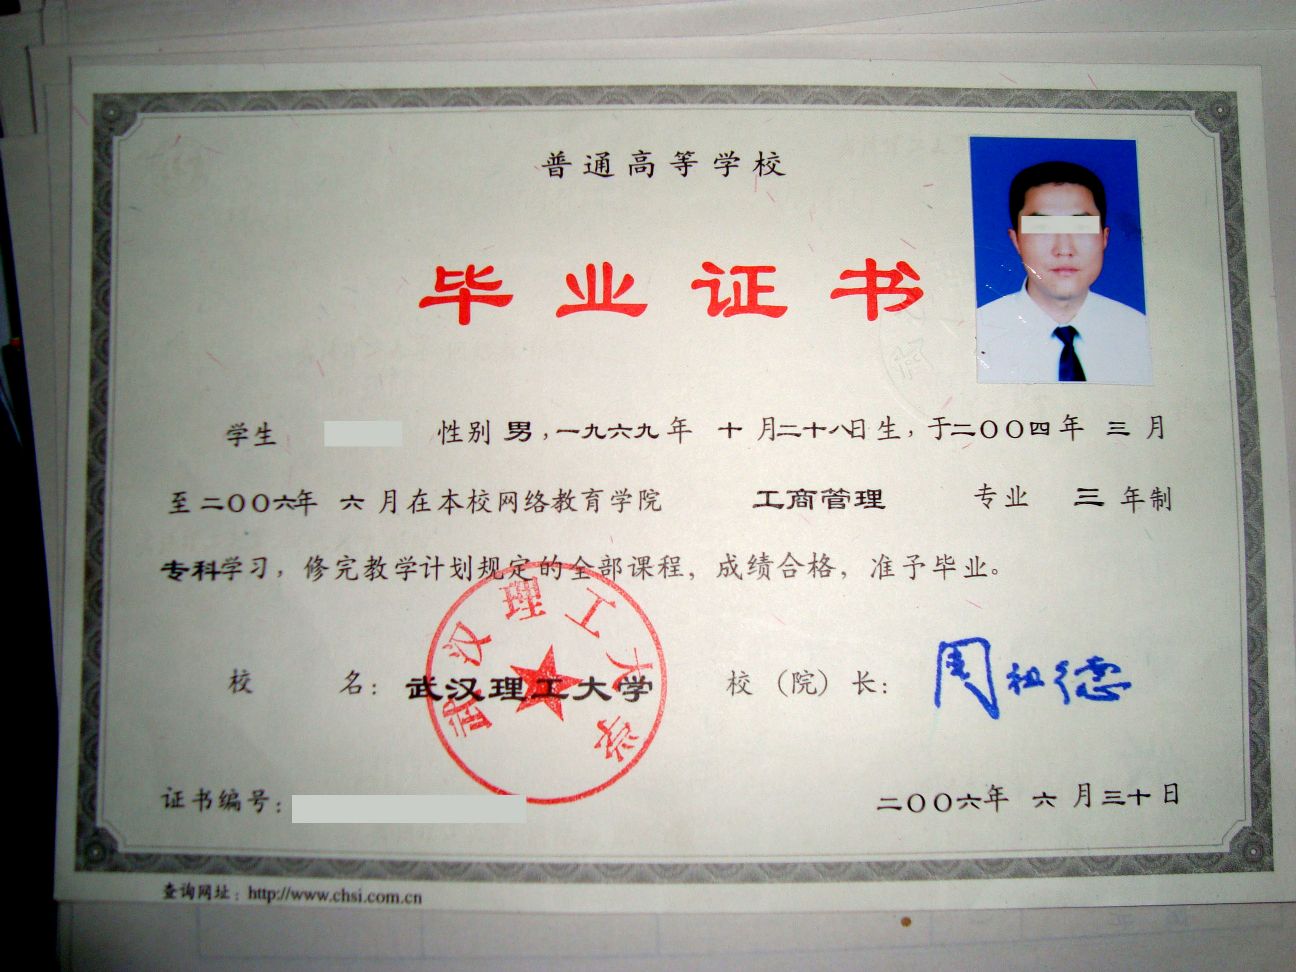 普通高等学校
毕业证书
学生 性别 男，一九六九年 十 月二十八日生，于二〇〇四年 三 月
至 二〇〇六年 六 月在本校网络教育学院 工商管理 专业 三 年制
专科学习，修完教学计划规定的全部课程，成绩合格，准予毕业。
校 名：武汉理工大学 校（院）长：周祖德
武汉理工大学
证书编号： 二〇〇六年 六 月三十日
查询网址：http://www.chsi.com.cn